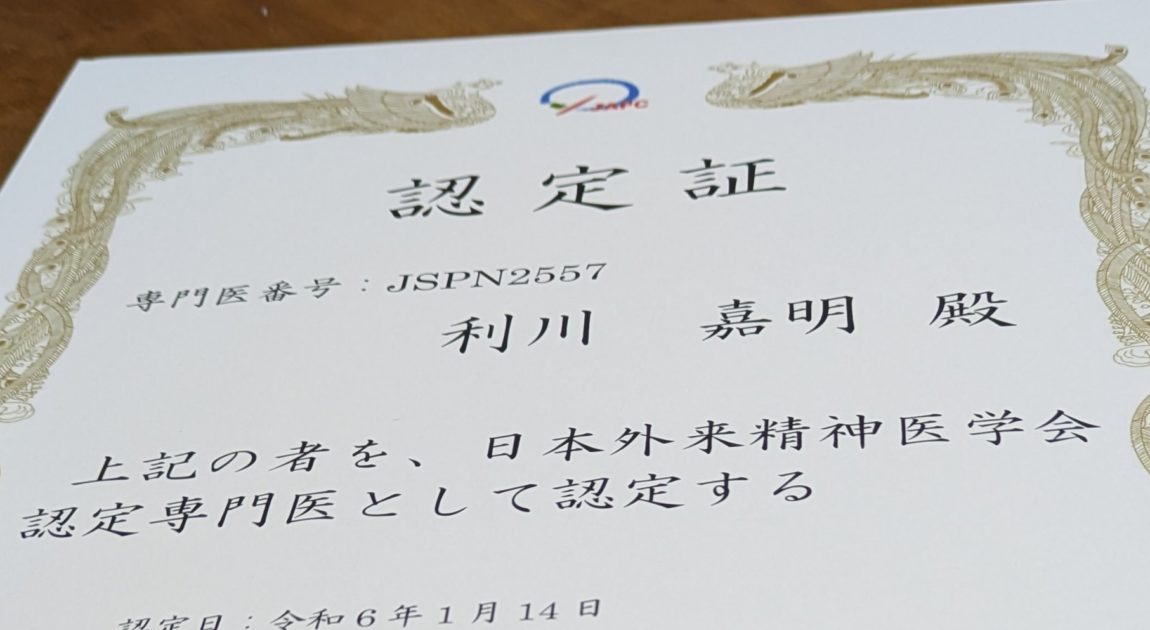 JAPC
認定証
専門医番号：JSPN2557
利川 嘉明 殿
上記の者を、日本外来精神医学会
認定専門医として認定する
認定日：令和6年1月14日